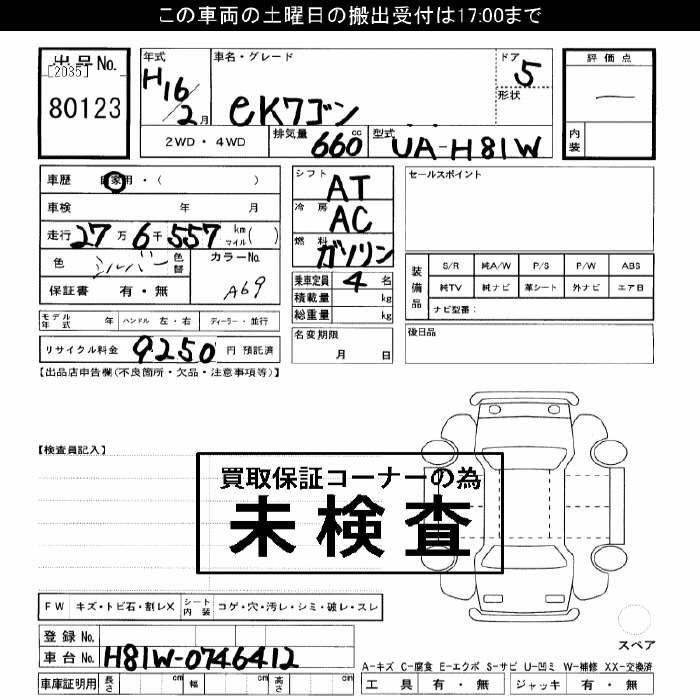 この車両の土曜日の搬出受付は17:00まで
出品No.
[2035]
80123
年式
H16/2月
車名・グレード
eKワゴン
ドア
5
形状
評価点
内装
2WD・4WD
排気量
660cc
型式
UA-H81W
車歴 自家用・( )
車検 年 月
走行 27万6千557 km マイル( )
色 シルバー 色替
カラーNo.
A69
保証書 有・無
モデル年式 年 ハンドル 左・右 ディーラー・並行
リサイクル料金 9250 円 預託済
シフト
AT
冷房
AC
燃料
ガソリン
乗車定員 4 名
積載量 kg
総重量 kg
名変期限
月 日
セールスポイント
装備品
S/R 純A/W P/S P/W ABS
純TV 純ナビ 革シート 外ナビ エアB
ナビ型番:
後日品
【出品店申告欄(不良箇所・欠品・注意事項等)】
【検査員記入】
買取保証コーナーの為
未検査
FW キズ・トビ石・割レX シート内装 コゲ・穴・汚レ・シミ・破レ・スレ
登録No.
車台No. H81W-0746412
車庫証明用 長さ cm 幅 cm 高さ cm
スペア
A-キズ C-腐食 E-エクボ S-サビ U-凹ミ W-補修 XX-交換済
工具 有・無 ジャッキ 有・無